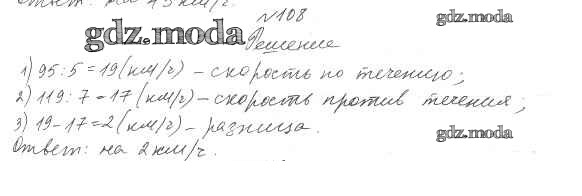 Ответ: на 15 км/ч.
№108
gdz.moda
gdz.moda Решение
1) 95:5=19(км/ч) – скорость по течению;
2) 119:7=17(км/ч) – скорость против течения;
3) 19-17=2(км/ч) – разница.
gdz.moda
Ответ: на 2 км/ч.